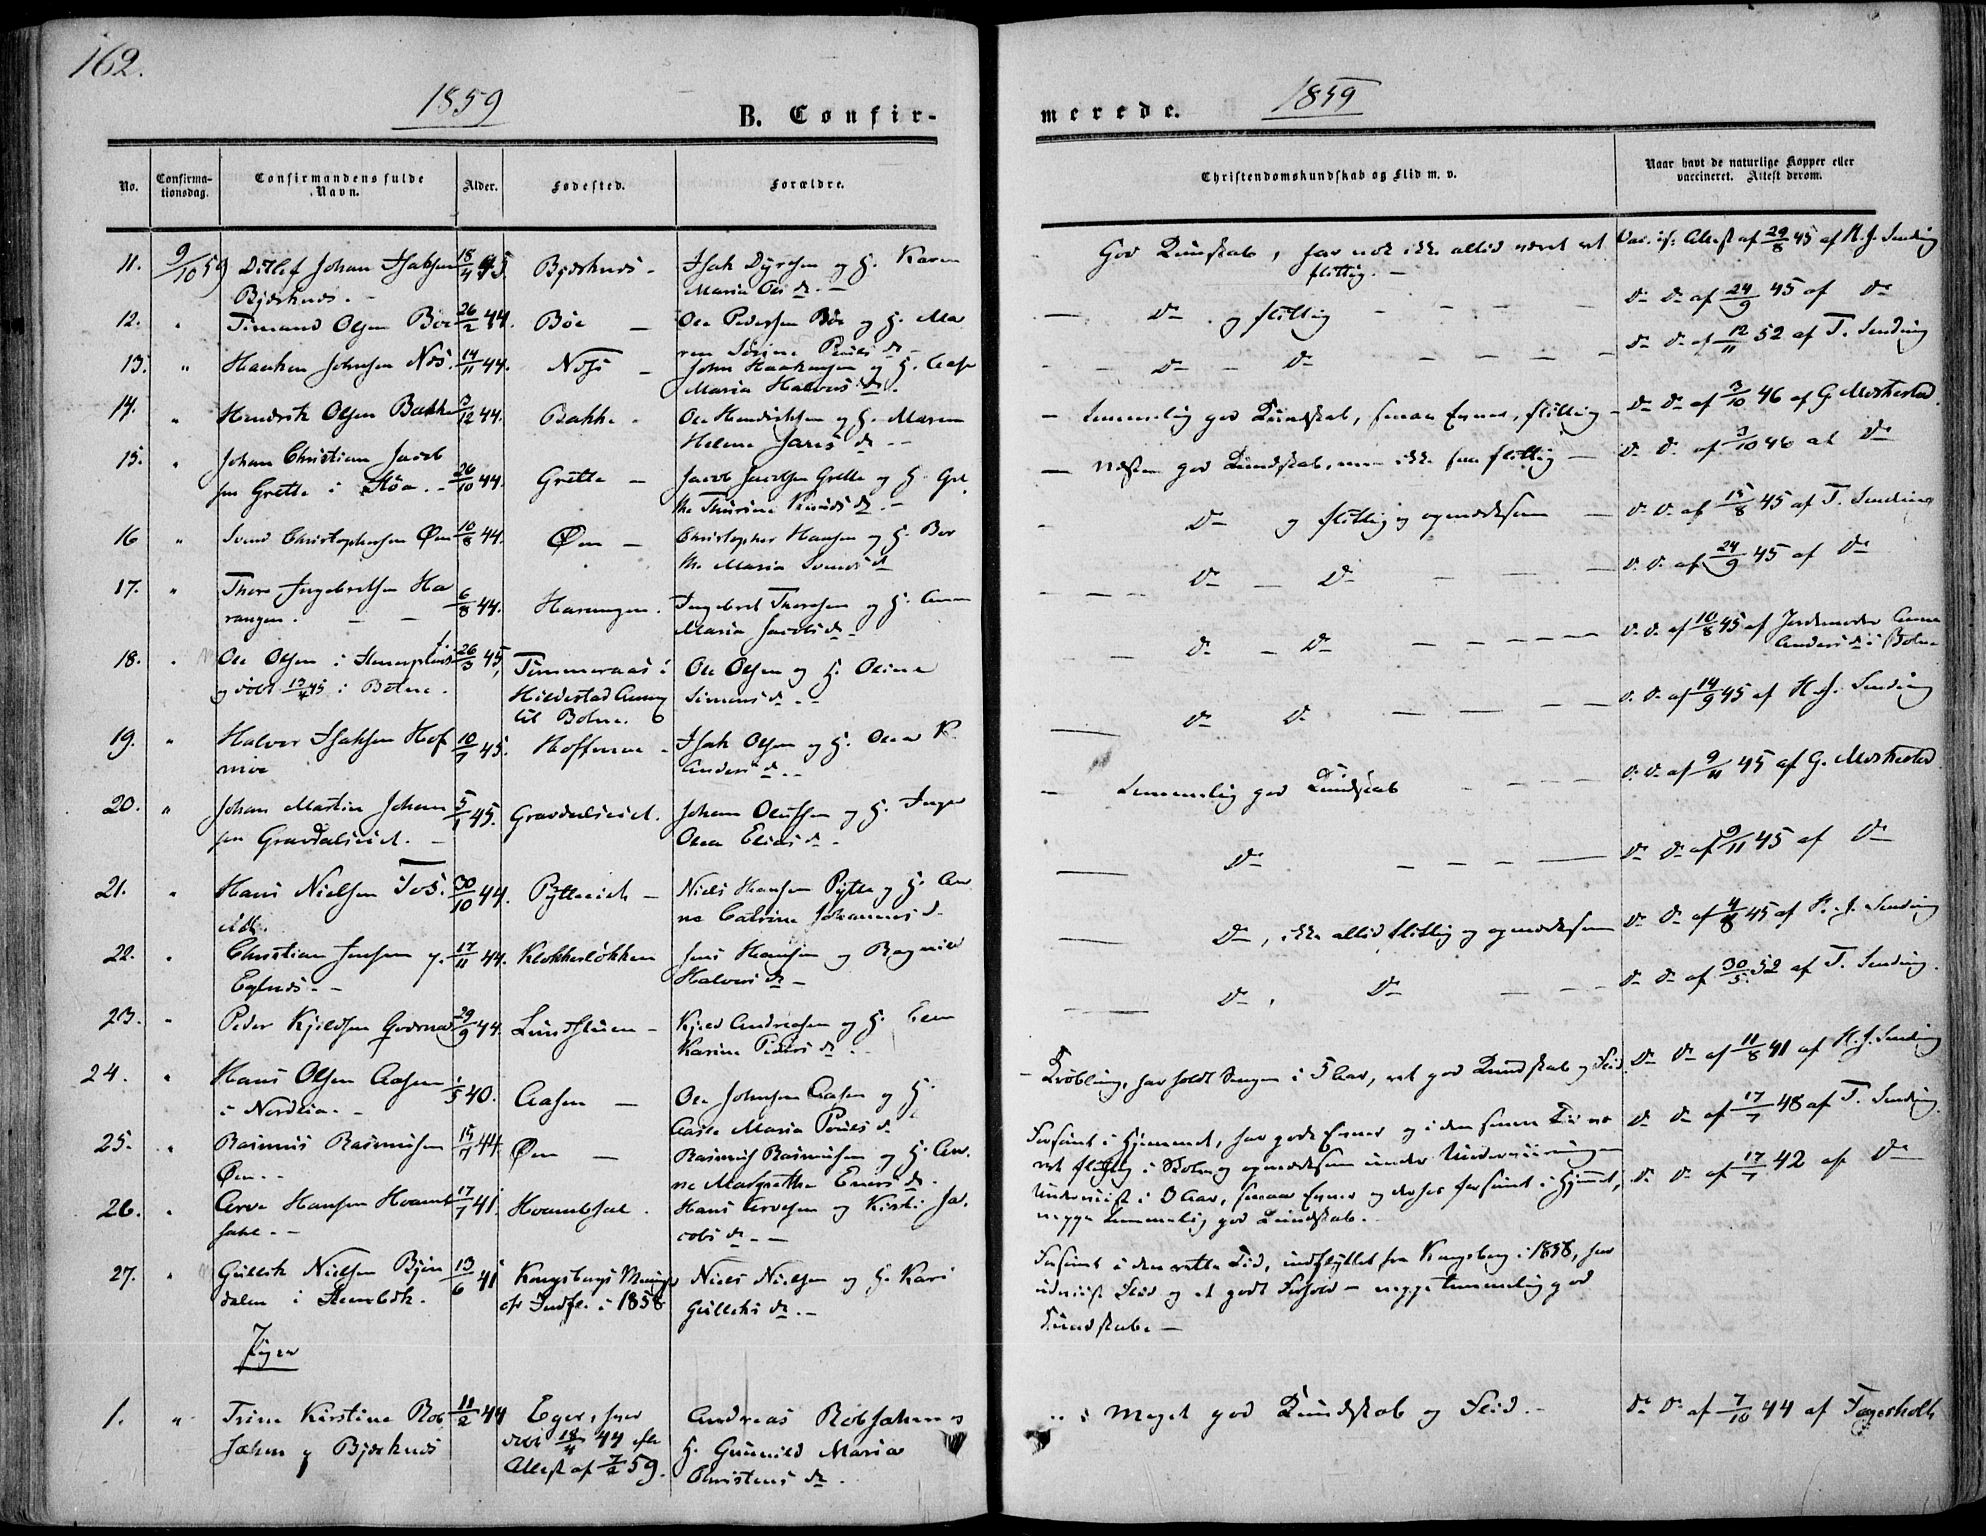 162.
1859
B. Confir-
No.
Confirma-
tionsdag.
Confirmandens fulde
Navn.
Alder.
Fødested.
Forældre.
11. 9/10 59 Ditlef Johan Isaksen 18/4 45. Bjerknes - Isak Dyresen og H. Karen
Bjerknes. - Maria Ols d. -
12. " Timand Olsen Böe 26/2 44. Böe - Ole Pedersen Böe og H. Ma
ren Sörine Pouls d. -
13. " Haaken Johnsen Næs. 14/11 44. Næss - John Haakensen og H. Aase
Maria Halvors d. -
14. " Hendrik Olsen Bakke 3/12 44. Bakke - Ole Hendriksen og H. Maren
Helene Jans d. -
15. " Johan Christian Jacob
sen Grette i Höa. - 26/10 44. Grette - Jacob Jacobsen Grette og H. Gre
the Thurine Knuds d. -
16 " Svend Christophersen Øen 10/8 44. Øen - Christopher Hansen og H. Ber
the Maria Svends d.
17. " Thore Ingebretsen Ha
rangen. - - 6/8 44. Harangen. Ingebret Thoresen og H. Anne
Maria Jacobs d. -
18. " Ole Olsen i 26/3 45, Timmeraas i Ole Olsen og H. Oline
og döbt 13/4 45 i Botne. Hildestad Annex Simens d. -
til Botne.
19. " Halvor Isaksen Hof 10/7 45. Hoffmoe - Isak Olsen og H. Olea K.
moe Anders d. -
20. " Johan Martin Johan 5/1 45. Gravdalseiet. Johan Olufsen og H. Inger
sen Gravdalseiet. - Olea Elias d. -
21. " Hans Nielsen 30/10 44. Pytteeiet - Niels Hansen Pytte og H. An
ne Catrine Johannes d.
22. " Christian Jensen 17/11 44. Klokkerløkken Jens Hansen og Ragnild
Halvors d. -
23. " Peder Kjeldsen 29/9 44. Lundstuen - Kjeld Andreasen og H.
Karine Peders d. -
24. " Hans Olsen Aasen 1/5 40. Aasen - Ole Johnsen Aasen og H.
i Nordlia. - Aase Maria Pouls d.
25. " Rasmus Rasmussen 15/7 44 Øen - Rasmus Rasmussen og H. An
Øen. - ne Margrethe Eners d.
26. " Arve Hansen Hvamb 17/7 41. Hvambsal. Hans Arvesen og Kirsti Ja
sahl. - cobs d. -
27. " Gullik Nielsen Bjön 13/6 41 Kongsbergs Menigh Niels Nielsen og H. Kari
dalen i Stenbek. Indfl. i 1858 Gulliks d. -
Piger
1. " Trine Kirstine Rob 11/2 44 Eger, hvor Andreas Robsahm og
sahm Bjerknes döbt 18/4 44 efter H. Gunnild Maria
Attest af 7/2 59. Christens d. -
merede.
1859
Christendomskundskab og Flid m. v.
Naar havt de naturlige Kopper eller
vaccineret. Attest derom.
God Kundskab, har nok ikke altid været ret Vac. if. Attest af 29/8 45 af H. J. Sending
flittig. -
- Do og flittig - - - Do Do af 24/9 45 af Do
- Do - Do - - - Do Do af 12/11 52 af T. Sending
- Temmelig god Kundskab, smaa Evner, flittig - Do Do af 3/10 46 af G. Meskestad.
- Næsten god Kundskab, men ikke saa flittig - Do Do af 3/10 46 af Do
- Do og flittig og opmærksom - Do Do af 15/8 45 af T. Sending
- Do - Do - - - Do Do af 24/9 45 af Do
- Do - Do - - - Do Do af 10/8 45 af Jordemoder Anne
Anders d. i Botne
- Do Do - - - Do Do af 14/9 45 af H. J. Sending
- Temmelig god Kundskab - - Do Do af 9/11 45 af G. Meskestad.
- Do - - - Do Do af 9/11 45 af Do
- Do, ikke altid flittig og opmærksom Do Do af 4/8 45 af H. J. Sending
- Do, Do - - Do Do af 30/5 52 af T. Sending.
- Krøbling, har holdt Sengen i 5 Aar, ret god Kundskab og Flid. Do Do af 11/8 41 af H. J. Sending
Forsømt i Hjemmet, har gode Evner og i den senere Tid været Do Do af 17/7 48 af T. Sending.
flittig i Skolen og opmærksom under Underviisningen
Underviist i 3 Aar, smaa Evner og derhos forsømt i Hjemmet, Do Do af 17/7 42 af Do
neppe temmelig god Kundskab. -
Forsømt i den rette Tid, indflyttet fra Kongsberg i 1858, har
udviist Flid og et godt Forhold - neppe temmelig god
Kundskab. -
Meget god Kundskab og Flid. - Do Do af 7/10 44 af Fagerholt